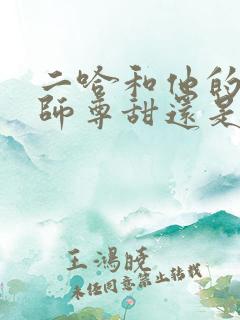 二哈和他的
師尊甜還是
王鴻曉
未經同意禁止轉載